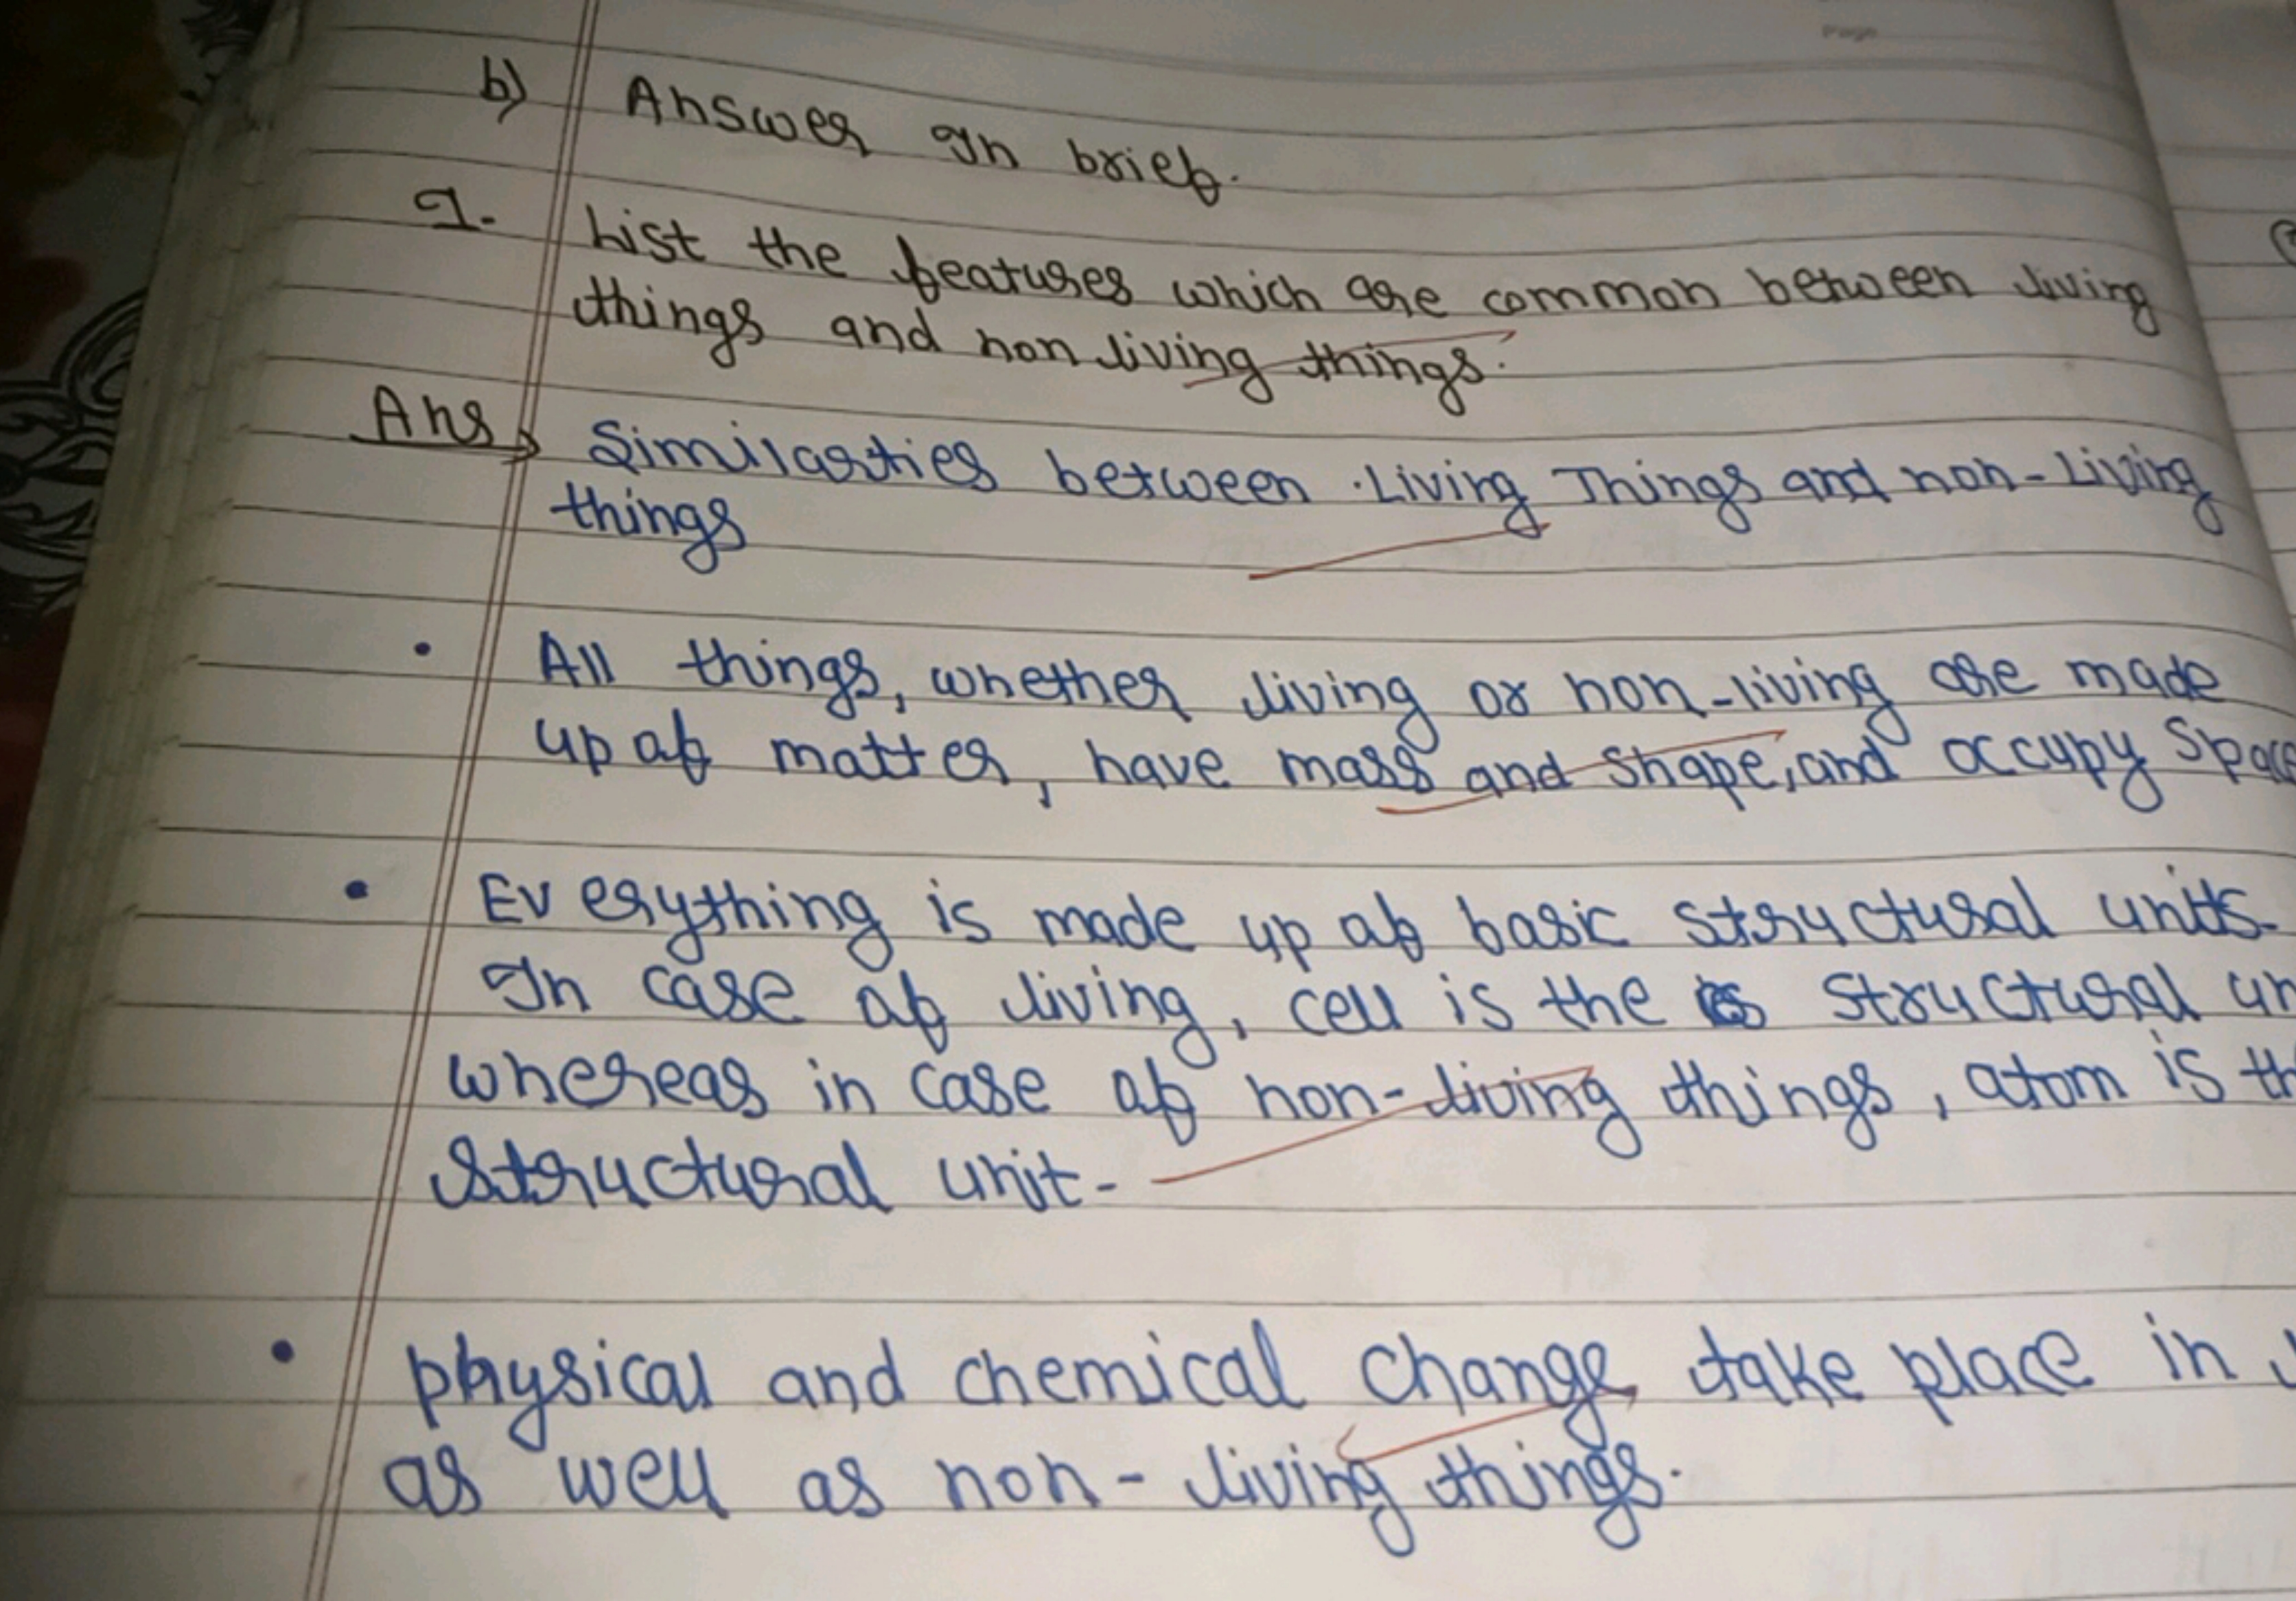 Page
b) Answer In brief.
1. List the features which are common between living
things and non living things.
Ans → Similarties between Living Things and non-Living
things
• All things, whether living or non-living are made
up of matter, have mass and shape, and occupy Space
• Everything is made up of basic structural units.
In case of living, cell is the structural un
whereas in case of non-living things, atom is th
structural unit-
• physical and chemical change take place in
as well as non-living things.